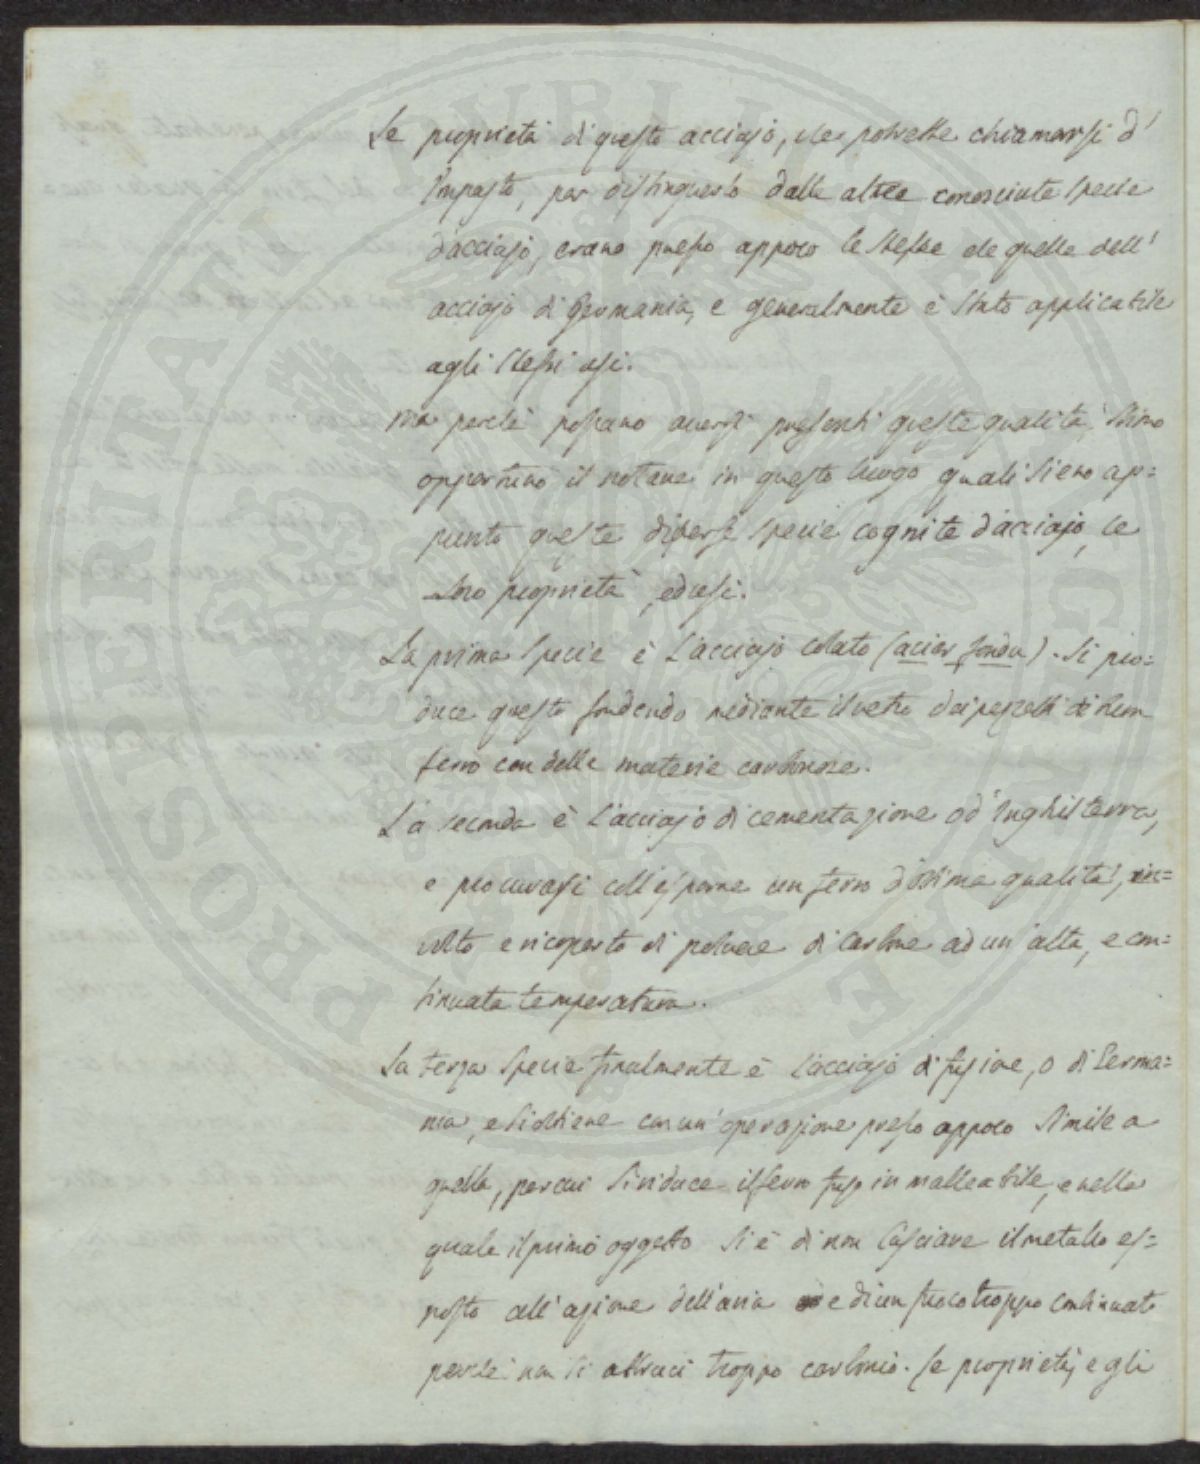 Le proprietà di questo acciajo, che potrebbe chiamarsi d'
Impasto, per distinguerlo dalle altre conosciute specie
d'acciajo, erano presso appoco le stesse che quelle dell'
acciajo di Germania, e generalmente è stato applicabile
agli stessi usi.
Ma perchè possano aversi presenti queste qualità, stimo
opportuno il notare in questo luogo quali sieno ap=
punto queste diverse specie cognite d'acciajo, le
loro proprietà, ed usi.
La prima specie è l'acciajo colato (acier fondu). Si pro=
duce questo fondendo mediante il vetro dei pezzetti di
ferro con delle materie carbonose.
La seconda è l'acciajo di cementazione o d'Inghilterra,
e procurasi coll'esporre un ferro d'ottima qualità, in=
volto e ricoperto di polvere di Carbone ad un'alta, e con=
tinuata temperatura.
La terza specie finalmente è l'acciajo di fusione, o di Germa=
nia, e si ottiene con un'operazione presso appoco simile a
quella, per cui si riduce il ferro fuso in malleabile, e nella
quale il primo oggetto si è di non lasciare il metallo es=
posto all'azione dell'aria e di un fuoco troppo continuato
perchè non si abbruci troppo carbonio. Le proprietà, e gli
PROSPERITATI PVBLICAE AVGENDAE